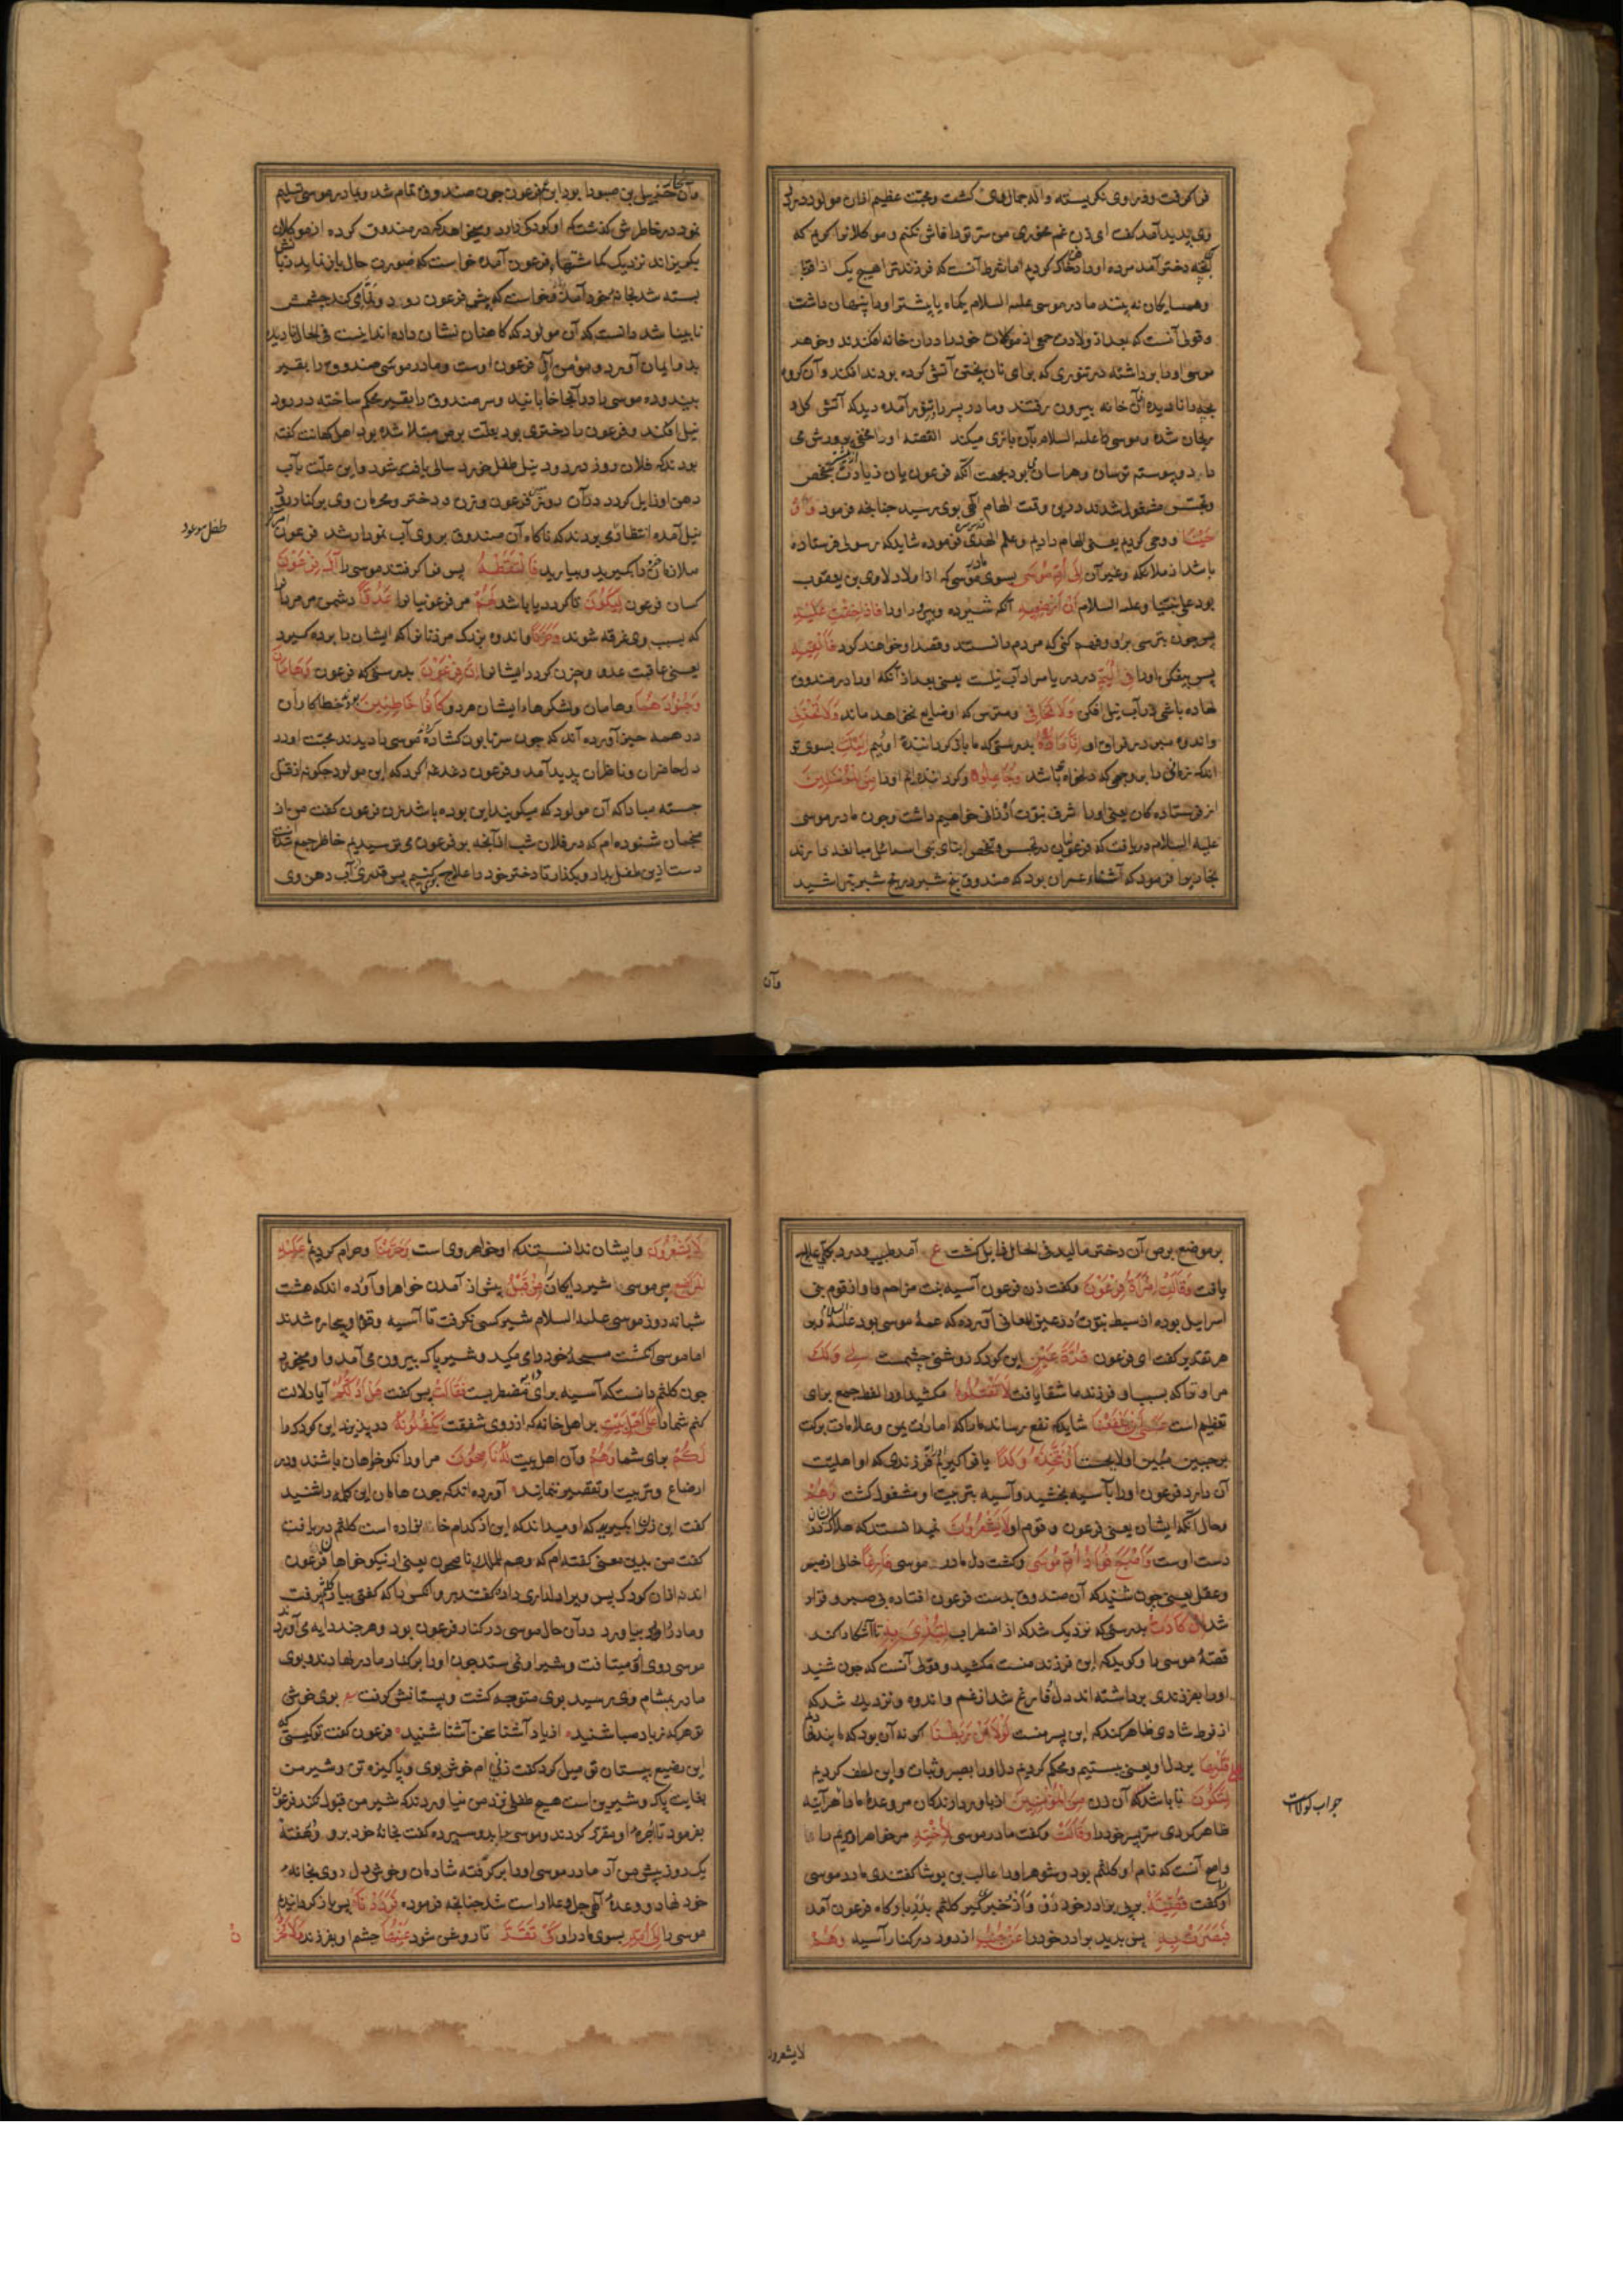 فرا گرفت و در وی نکریسته واله جمال وی کشت و محبت عظیم ازان مولود در دل
وی پدید آمد کفت ای زن غم مخور من سر تو را فاش نکنم و موکلانرا کویم که
دختر آمد مرده او را در خاک کردیم اما شرط آنست که فرزند ترا هیچ یک از اقربا
و همسایکان نه بینند مادر موسی علیه السلام یکماه یا بیشتر او را پنهان داشت
و قولی آنست که بعد از ولادت جمعی از موکلان خود را دران خانه افکندند و خواهر
موسی او را برداشته در تنوری که برای نان پختن آتش کرده بودند افکند و آن کروه
بچه را نادیده ازان خانه بیرون رفتند و مادر بسر تنور آمده دید که آتش کل و
ریحان شده و موسی علیه السلام بآن بازی میکند القصه او را مخفی پرورش می
داد و پیوسته ترسان و هراسان بود بجهت آنکه فرعونیان زیادت تفحص
و تجسس مشغول شدند درین وقت الهام الهی بوی رسید چنانچه فرمود وَأَوْ
حَيْنَا و وحی کردیم یعنی الهام دادیم و علم الهدی فرموده شاید که رسولی فرستاده
باشد از ملائکه و غیر آن إِلَىٰ أُمِّ مُوسَىٰ بسوی مادر موسی که از اولاد لاوی بن یعقوب
بود علی نبینا و علیه السلام أَنْ أَرْضِعِيهِ آنکه شیر ده و بپرور او را فَإِذَا خِفْتِ عَلَيْهِ
پس چون بترسی برو و فهم کنی که مردم دانستند و قصد او خواهند کرد فَأَلْقِيهِ
پس بیفکن او را فِي الْيَمِّ در دریا مراد آب نیلست یعنی بعد از آنکه او را در صندوق
نهاده باشی در آب نیل افکن وَلَا تَخَافِي و مترس که او ضایع نخواهد ماند وَلَا تَحْزَنِي
و اندوه مبر در فراق او إِنَّا رَادُّوهُ بدرستی که ما باز کرداننده اوئیم إِلَيْكِ بسوی تو
اندک زمانی را بر وجهی که دلخواه باشد وَجَاعِلُوهُ و کرداننده ایم او را مِنَ الْمُرْسَلِينَ
از فرستاده کان یعنی او را شرف نبوت ارزانی خواهیم داشت و چون مادر موسی
علیه السلام دریافت که فرعونیان در تجسس و تفحص ابنای بنی اسرائیل مبالغه دارند
نجاریرا فرمود که آشنای عمران بود که صندوق پنج شبر در پنج شبر بتراشید
وآن
وآن نجار حزبیل بن صبورا بود ابن عم فرعون چون صندوق تمام شد و بمادر موسی تسلیم
نمود در خاطرش کذشت که او کودکی دارد و میخواهد که در صندوق کرده از موکلان
بکریزاند نزدیک کماشتهای فرعون آمده خواست که صورت حال باز نماید زبانش
بسته شد بخانه خود آمد و خواست که پیش فرعون رود و غمازی کند چشمش
نابینا شد دانست که آن مولود که کاهنان نشان داده اند اینست فی الحال نادیده
بدو ایمان آورد و مؤمن آل فرعون اوست و مادر موسی صندوق را بقیر
بیندوده موسی را در آنجا خابانید و سر صندوق را بقیر محکم ساخته در رود
نیل افکند و فرعون را دختری بود بعلت برص مبتلا شده بود اهل کهانت کفته
بودند که فلان روز در رود نیل طفل خرد سالی یافت شود و این علت بآب
دهن او زایل کردد در آن روز فرعون و زن و دختر و محرمان وی بر کنار رود
نیل آمده انتظار می بردند که ناکاه آن صندوق بر روی آب نمودار شد فرعون
ملازمانرا کفت بکیرید و بیارید فَالْتَقَطَهُ پس فرا کرفتند موسی را آلُ فِرْعَوْنَ
کسان فرعون لِيَكُونَ تا کردد یا باشد لَهُمْ مر فرعونیانرا عَدُوًّا دشمن مر مردانرا
که بسبب وی غرقه شوند وَحَزَنًا و اندوه بزرک مر زنانرا که ایشان را برده کیرد
یعنی عاقبت عدو و حزن کردد ایشانرا إِنَّ فِرْعَوْنَ بدرستی که فرعون وَهَامَانَ
وَجُنُودَهُمَا و هامان و لشکرهای ایشان هر دو كَانُوا خَاطِئِينَ بودند خطا کاران
در همه چیز آورده اند که چون سر تابوت کشاده موسی را دیدند محبت او در
دل حاضران و ناظران پدید آمد و فرعون دغدغه کرد که این مولود چکونه از قتل
جسته مبادا که آن مولود که میکویند این بوده باشد زن فرعون کفت من از
منجمان شنوده ام که در فلان شب از آنچه بر فرعون می ترسیدیم خاطر جمع شد
دست ازین طفل بدار و بکذار تا دختر خود را علاج کنیم پس قدری آب دهن وی
طفل موعود
بر موضع برص آن دختر مالید فی الحال زایل کشت ع آمد طبیب و درد بکلی علاج
یافت وَقَالَتِ امْرَأَةُ فِرْعَوْنَ و کفت زن فرعون آسیه بنت مزاحم و او از قوم بنی
اسرایل بوده از سبط نبوت و در عین المعانی آورده که عمهٔ موسی بود علیه السلام و بر
هر تقدیر کفت ای فرعون قُرَّتُ عَيْنٍ این کودک روشنی چشمست لِي وَلَكَ
مرا و ترا که بسبب او فرزند ما شفا یافت لَا تَقْتُلُوهُ مکشید او را لفظ جمع برای
تعظیم است عَسَىٰ أَنْ يَنْفَعَنَا شاید که نفع رساند ما را که امارات یمن و علامات برکت
بر جبین مبین او لایحست أَوْ نَتَّخِذَهُ وَلَدًا یا فرا کیریم او را فرزندی که او اهلیت
آن دارد فرعون او را بآسیه بخشید و آسیه بتربیت او مشغول کشت وَهُمْ
و حال آنکه ایشان یعنی فرعون و قوم او لَا يَشْعُرُونَ نمیدانستند که هلاک ایشان در
دست اوست وَأَصْبَحَ فُؤَادُ أُمِّ مُوسَىٰ و کشت دل مادر موسی فَارِغًا خالی از صبر
و عقل یعنی چون شنید که آن صندوق بدست فرعون افتاده بی صبر و قرار
شد إِنْ كَادَتْ بدرستی که نزدیک شد که از اضطراب لَتُبْدِي بِهِ تا آشکارا کند
قصهٔ موسی را و کوید که این فرزند منست مکشید و قولی آنست که چون شنید
او را بفرزندی برداشته اند دل او فارغ شد از غم و اندوه و نزدیک شد که
از فرط شادی ظاهر کند که این پسر منست لَوْلَا أَنْ رَبَطْنَا اکر نه آن بود که ما بند نهادیم
عَلَىٰ قَلْبِهَا بر دل او یعنی ببستیم و محکم کردیم دل او را بصبر و ثبات و این لطف کردیم
لِتَكُونَ تا باشد که آن زن مِنَ الْمُؤْمِنِينَ از باور دارندکان مر وعدهٔ ما را هر آینه
ظاهر کردی سر پسر خود را وَقَالَتْ و کفت مادر موسی لِأُخْتِهِ مر خواهر او مریم را
و اصح آنست که نام او کلثم بود و شوهر او را غالب بن یوشا کفتندی مادر موسی
او را کفت قُصِّيهِ بر پی برادر خود رو و از وی خبر کیر کلثم بدر بارکاه فرعون آمد
فَبَصُرَتْ بِهِ پس بدید برادر خود را عَنْ جُنُبٍ از دور در کنار آسیه وَهُمْ
جواب لولاست
لایشعرون
لَا يَشْعُرُونَ و ایشان ندانستند که او خواهر وی است وَحَرَّمْنَا و حرام کردیم عَلَيْهِ
الْمَرَاضِعَ بر موسی شیر دایکان مِنْ قَبْلُ پیش از آمدن خواهر او آورده اند که هشت
شبانه روز موسی علیه السلام شیر کسی نکرفت تا آسیه و قوم او بیچاره شدند
اما موسی انکشت مسبحهٔ خود را می مکید و شیر پاک بیرون می آمد و او میخورد
چون کلثم دانست که آسیه برای مرضعه مضطربست فَقَالَتْ پس کفت هَلْ أَدُلُّكُمْ آیا دلالت
کنم شما را عَلَىٰ أَهْلِ بَيْتٍ بر اهل خانه که از روی شفقت يَكْفُلُونَهُ در پذیرند این کودک را
لَكُمْ برای شما وَهُمْ و آن اهل بیت لَهُ نَاصِحُونَ مر او را نکو خواهان باشند و در
ارضاع و تربیت او تقصیر ننمایند آورده اند که چون هامان این کلمه را شنید
کفت این زنرا بکیرید که او میداند که این از کدام خانواده است کلثم دریافت
کفت من بدین معنی کفته ام که وهم للملک ناصحون یعنی نیکو خواهان فرعون
اند دازان کودک پس ویرا دلداری داده کفتند برو آنکس را که کفتی بیار کلثم برفت
و مادر او را بیاورد در آن حال موسی در کنار فرعون بود و هر چند دایه می آوردند
موسی روی ازو میتافت و شیر او نمی ستد چون او را بر کنار مادر نهادند و بوی
مادر بمشام وی رسید بوی متوجه کشت و پستانش کرفت ع بوی خوش
تو هر که ز باد صبا شنید از یار آشنا سخن آشنا شنید فرعون کفت تو کیستی
این رضیع بپستان تو میل کرد کفت زنی ام خوش بوی و پاکیزه تن و شیر من
بغایت پاک و شیرین است هیچ طفلی نزد من نیاوردند که شیر من قبول نکند فرعون
بفرمود تا اجرهٔ او مقرر کردند و موسی را بدو سپرده کفت بخانهٔ خود برو و هفتهٔ
یک روز پیش من آر مادر موسی او را بر کرفته شادمان و خوش دل روی بخانهٔ
خود نهاد و وعدهٔ الهی جل و علا راست شد چنانچه فرموده فَرَدَدْنَاهُ پس باز کردانیدیم
موسی را إِلَىٰ أُمِّهِ بسوی مادر او كَيْ تَقَرَّ تا روشن شود عَيْنُهَا چشم او بفرزند وَلَا تَحْزَ
نَ